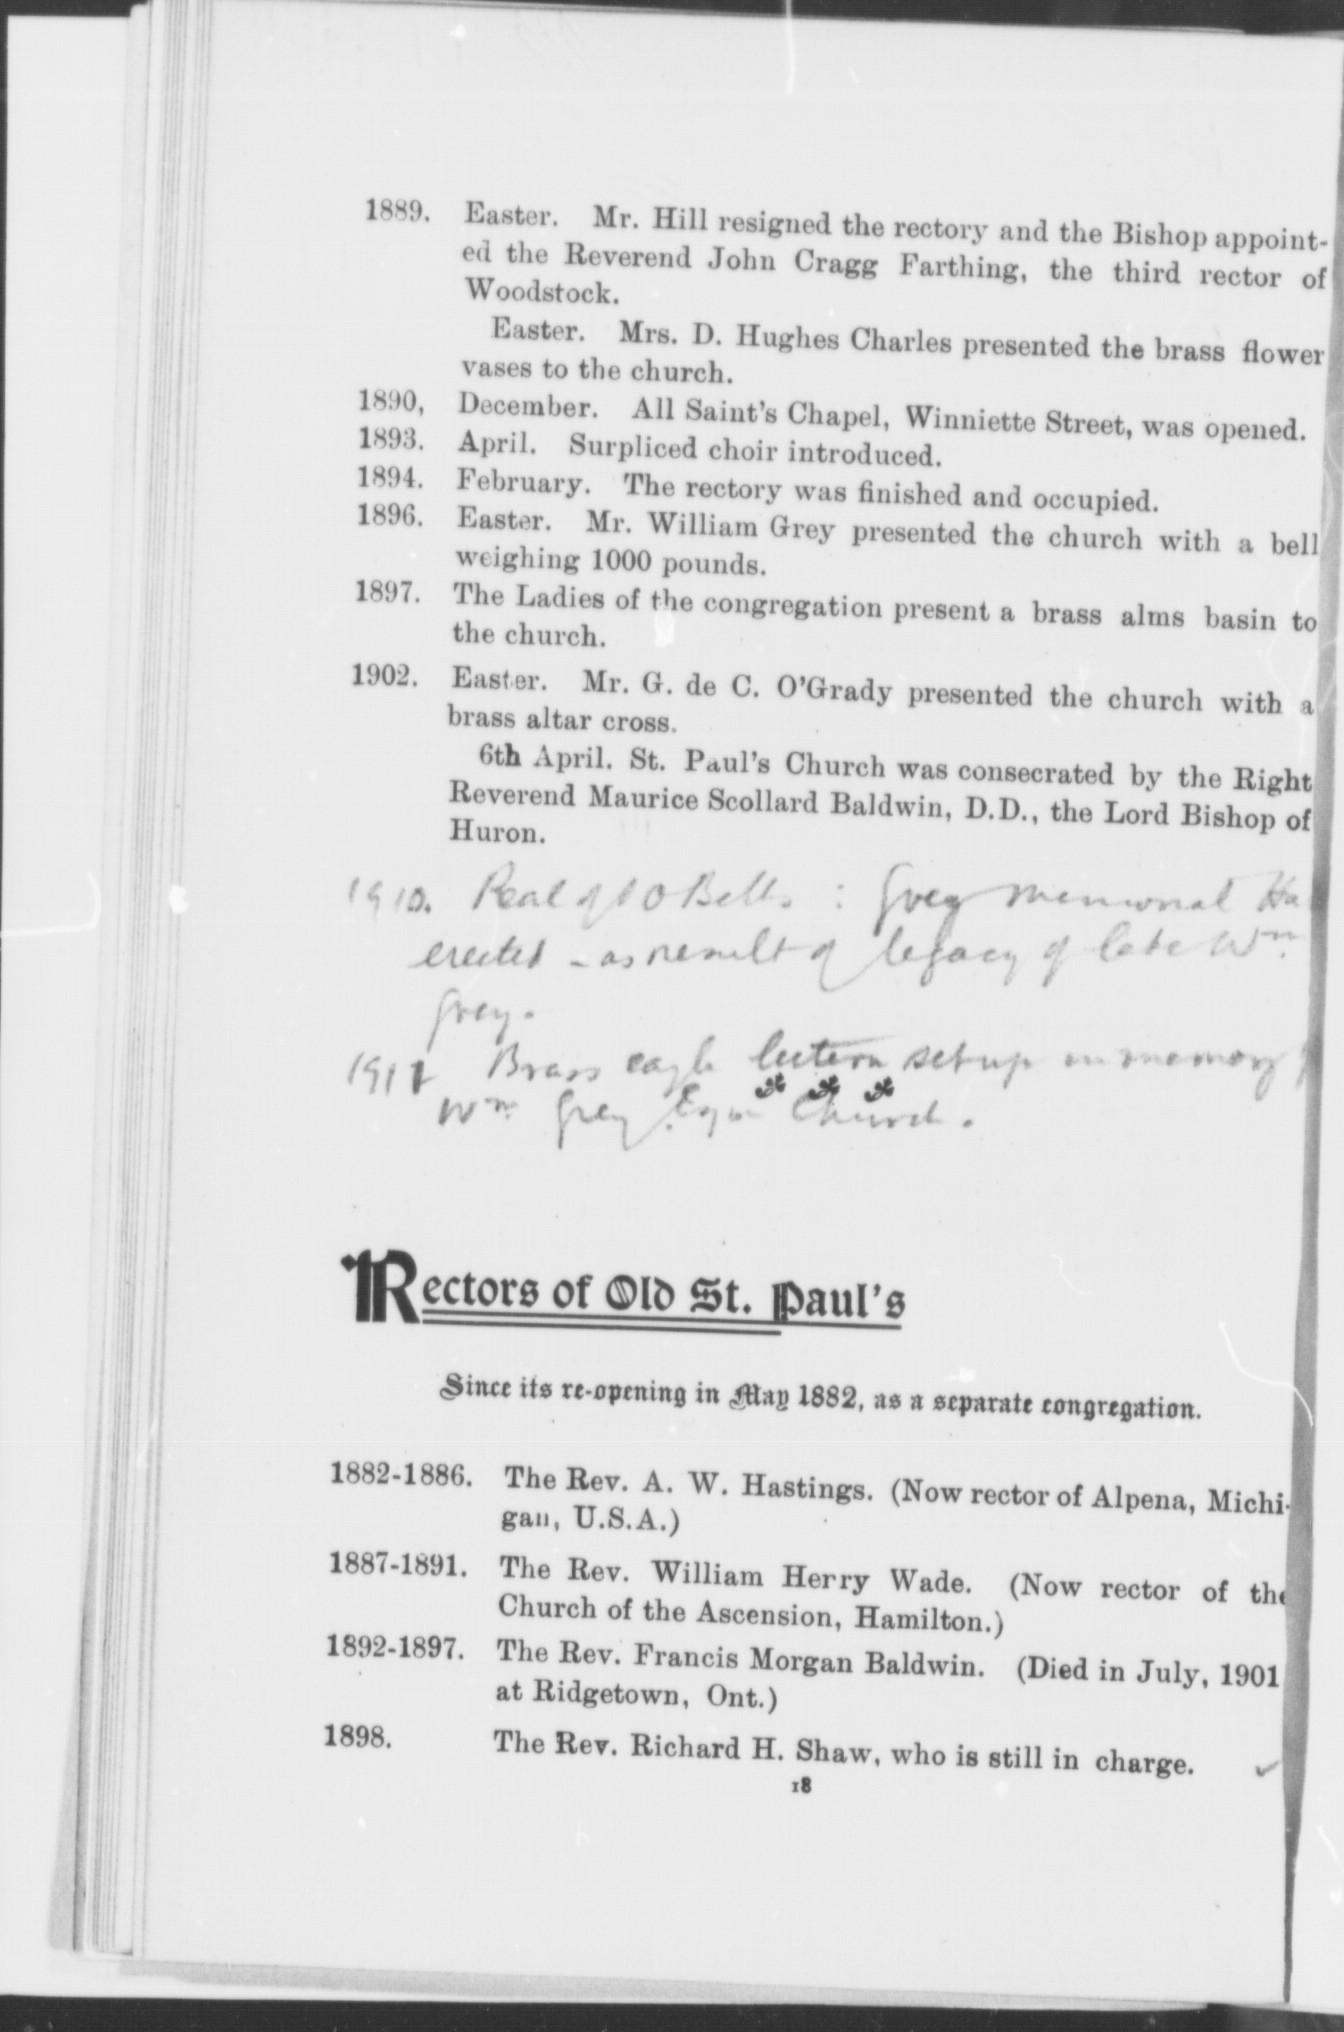 1889. Easter. Mr. Hill resigned the rectory and the Bishop appoint-
ed the Reverend John Cragg Farthing, the third rector of
Woodstock.
Easter. Mrs. D. Hughes Charles presented the brass flower
vases to the church.
1890, December. All Saint's Chapel, Winniette Street, was opened.
1893. April. Surpliced choir introduced.
1894. February. The rectory was finished and occupied.
1896. Easter. Mr. William Grey presented the church with a bell
weighing 1000 pounds.
1897. The Ladies of the congregation present a brass alms basin to
the church.
1902. Easter. Mr. G. de C. O'Grady presented the church with a
brass altar cross.
6th April. St. Paul's Church was consecrated by the Right
Reverend Maurice Scollard Baldwin, D.D., the Lord Bishop of
Huron.
1910. Peal of 10 Bells : Grey Memorial Ha
erected - as result of legacy of late Wm.
Grey.
Brass eagle lectern set up in memory
Wm. Grey Esq in Church.
Rectors of Old St. Paul's
Since its re-opening in May 1882, as a separate congregation.
1882-1886. The Rev. A. W. Hastings. (Now rector of Alpena, Michi-
gan, U.S.A.)
1887-1891. The Rev. William Herry Wade. (Now rector of the
Church of the Ascension, Hamilton.)
1892-1897. The Rev. Francis Morgan Baldwin. (Died in July, 1901
at Ridgetown, Ont.)
1898. The Rev. Richard H. Shaw, who is still in charge.
18